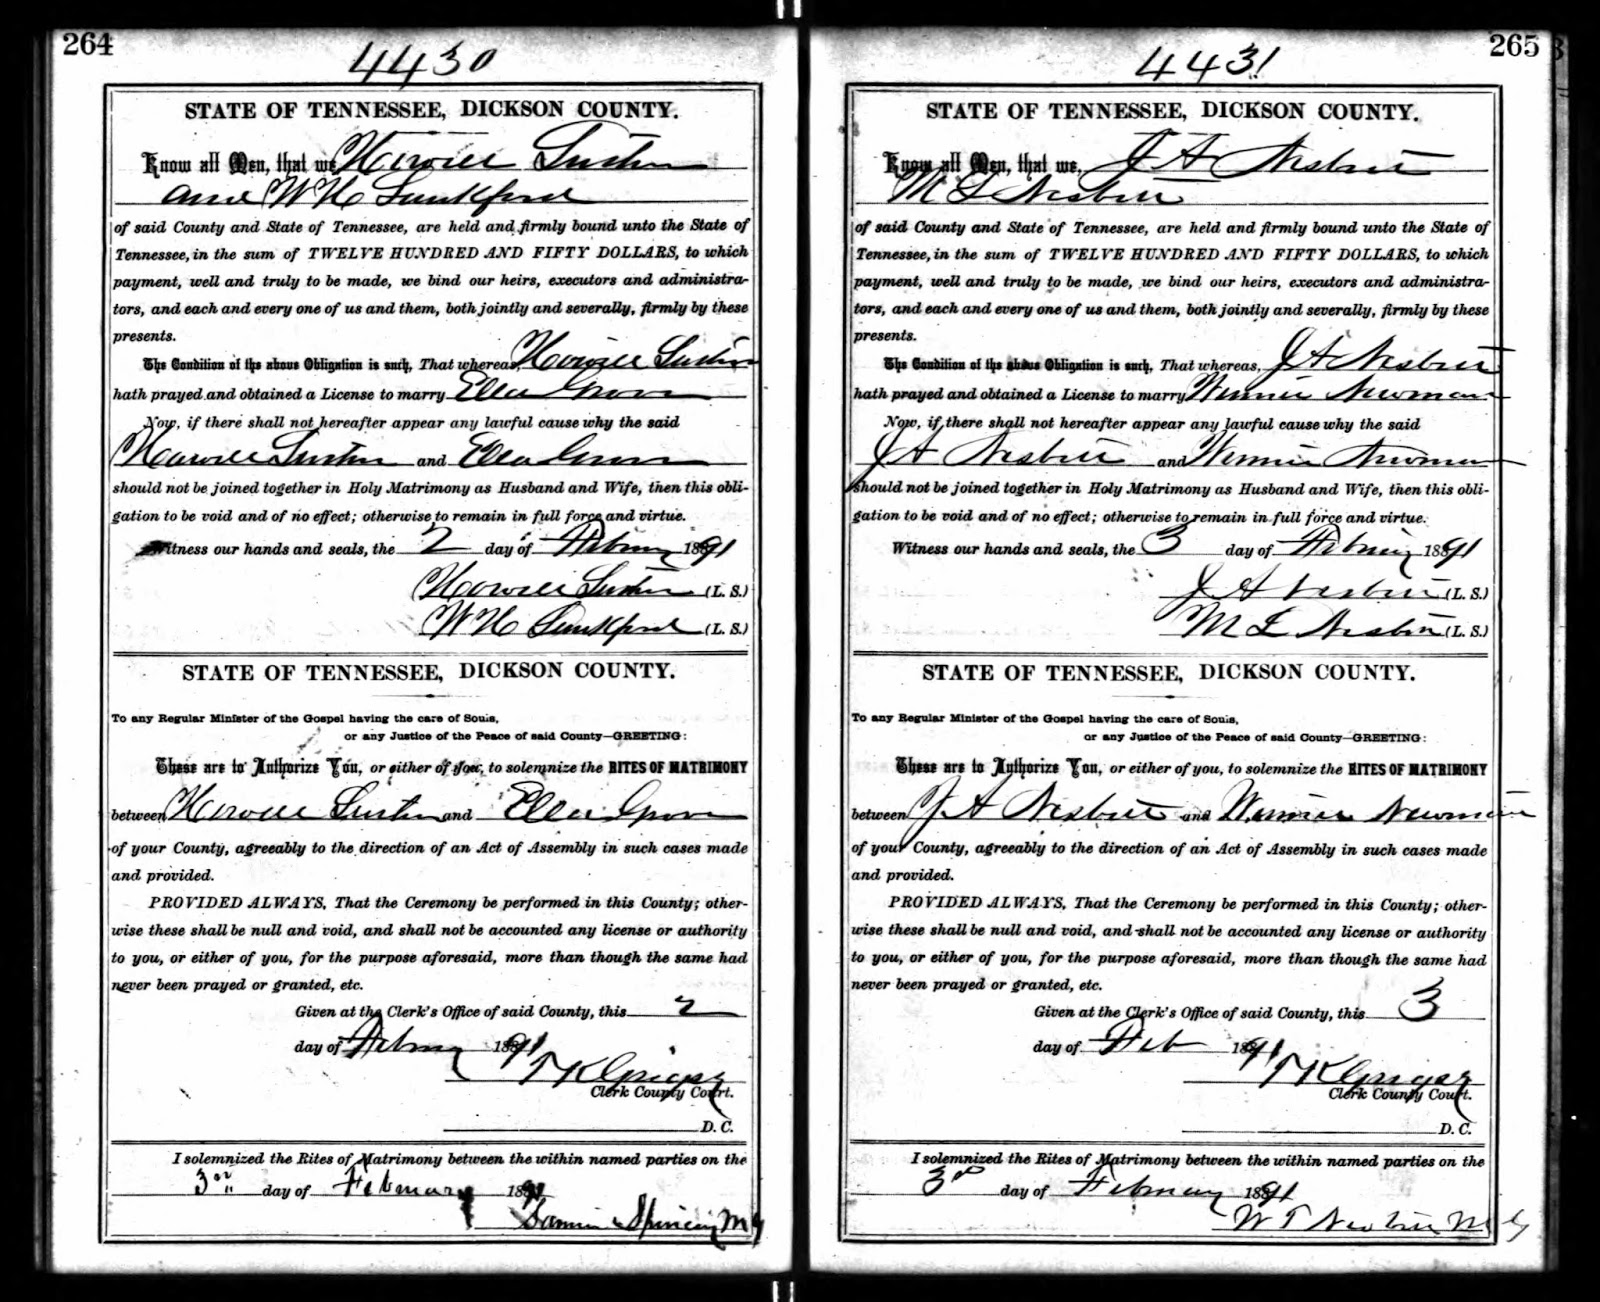 264
4430
STATE OF TENNESSEE, DICKSON COUNTY.
Know all Men, that we
and W H Lankford
of said County and State of Tennessee, are held and firmly bound unto the State of
Tennessee, in the sum of TWELVE HUNDRED AND FIFTY DOLLARS, to which
payment, well and truly to be made, we bind our heirs, executors and administra-
tors, and each and every one of us and them, both jointly and severally, firmly by these
presents.
The Condition of the above Obligation is such, That whereas,
hath prayed and obtained a License to marry Ella
Now, if there shall not hereafter appear any lawful cause why the said
and Ella
should not be joined together in Holy Matrimony as Husband and Wife, then this obli-
gation to be void and of no effect; otherwise to remain in full force and virtue.
Witness our hands and seals, the 2 day of February 1891
(L. S.)
W H Lankford (L. S.)
STATE OF TENNESSEE, DICKSON COUNTY.
To any Regular Minister of the Gospel having the care of Souls,
or any Justice of the Peace of said County—GREETING:
These are to Authorize You, or either of you, to solemnize the RITES OF MATRIMONY
between and Ella
of your County, agreeably to the direction of an Act of Assembly in such cases made
and provided.
PROVIDED ALWAYS, That the Ceremony be performed in this County; other-
wise these shall be null and void, and shall not be accounted any license or authority
to you, or either of you, for the purpose aforesaid, more than though the same had
never been prayed or granted, etc.
Given at the Clerk's Office of said County, this 2
day of February 1891
T K Grigsby
Clerk County Court.
D. C.
I solemnized the Rites of Matrimony between the within named parties on the
3rd day of February 1891
M G
265
4431
STATE OF TENNESSEE, DICKSON COUNTY.
Know all Men, that we, J A Nesbitt
M L Nesbitt
of said County and State of Tennessee, are held and firmly bound unto the State of
Tennessee, in the sum of TWELVE HUNDRED AND FIFTY DOLLARS, to which
payment, well and truly to be made, we bind our heirs, executors and administra-
tors, and each and every one of us and them, both jointly and severally, firmly by these
presents.
The Condition of the above Obligation is such, That whereas, J A Nesbitt
hath prayed and obtained a License to marry Winnie Newman
Now, if there shall not hereafter appear any lawful cause why the said
J A Nesbitt and Winnie Newman
should not be joined together in Holy Matrimony as Husband and Wife, then this obli-
gation to be void and of no effect; otherwise to remain in full force and virtue.
Witness our hands and seals, the 3 day of February 1891
J A Nesbitt (L. S.)
M L Nesbitt (L. S.)
STATE OF TENNESSEE, DICKSON COUNTY.
To any Regular Minister of the Gospel having the care of Souls,
or any Justice of the Peace of said County—GREETING:
These are to Authorize You, or either of you, to solemnize the RITES OF MATRIMONY
between J A Nesbitt and Winnie Newman
of your County, agreeably to the direction of an Act of Assembly in such cases made
and provided.
PROVIDED ALWAYS, That the Ceremony be performed in this County; other-
wise these shall be null and void, and shall not be accounted any license or authority
to you, or either of you, for the purpose aforesaid, more than though the same had
never been prayed or granted, etc.
Given at the Clerk's Office of said County, this 3
day of Feb 1891
T K Grigsby
Clerk County Court.
D. C.
I solemnized the Rites of Matrimony between the within named parties on the
3rd day of February 1891
W T Nesbitt M G